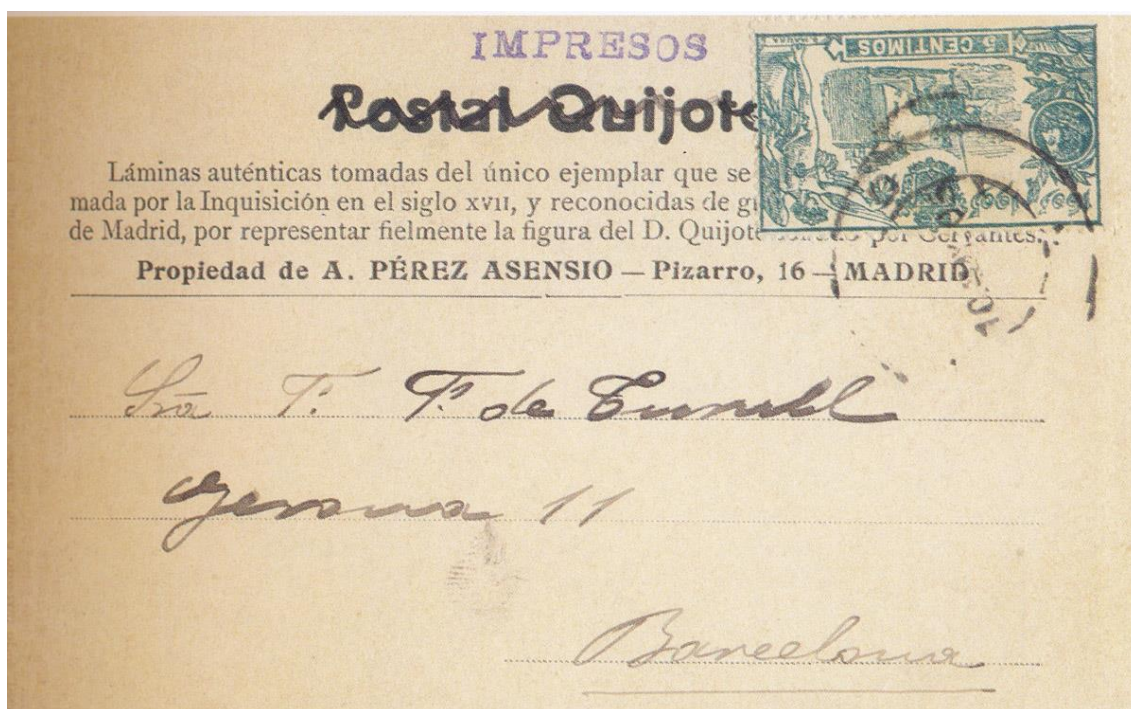 IMPRESOS
Postal Quijote
5 CENTIMOS
Láminas auténticas tomadas del único ejemplar que se
mada por la Inquisición en el siglo XVII, y reconocidas de
de Madrid, por representar fielmente la figura del D. Quijote por Cervantes.
Propiedad de A. PÉREZ ASENSIO — Pizarro, 16 — MADRID
Sra T. T. de
Gerona 11
Barcelona